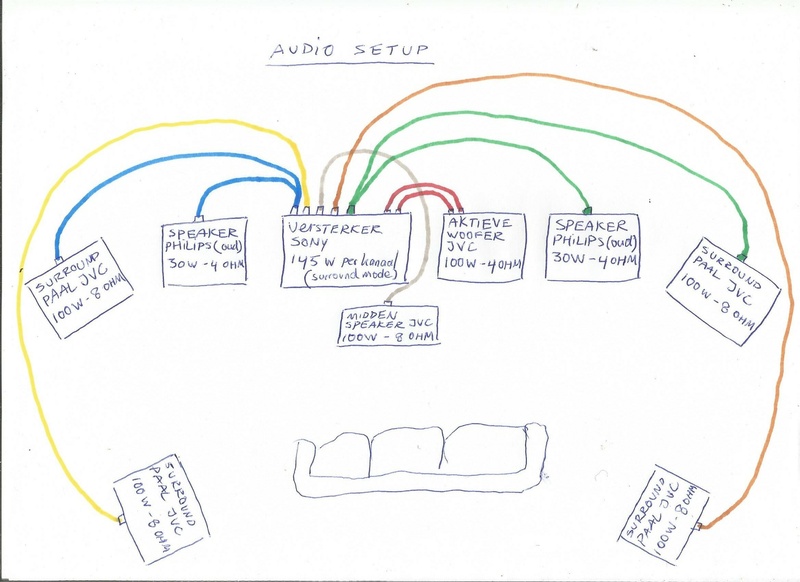 AUDIO SETUP
SPEAKER
PHILIPS (oud)
30W - 4 OHM
VERSTERKER
SONY
145 W per kanaal
(surround mode)
AKTIEVE
WOOFER
JVC
100W - 4 OHM
SPEAKER
PHILIPS (oud)
30W - 4 OHM
SURROUND
PAAL JVC
100W - 8 OHM
SURROUND
PAAL JVC
100W - 8 OHM
MIDDEN
SPEAKER JVC
100W - 8 OHM
SURROUND
PAAL JVC
100W - 8 OHM
SURROUND
PAAL JVC
100W - 8 OHM